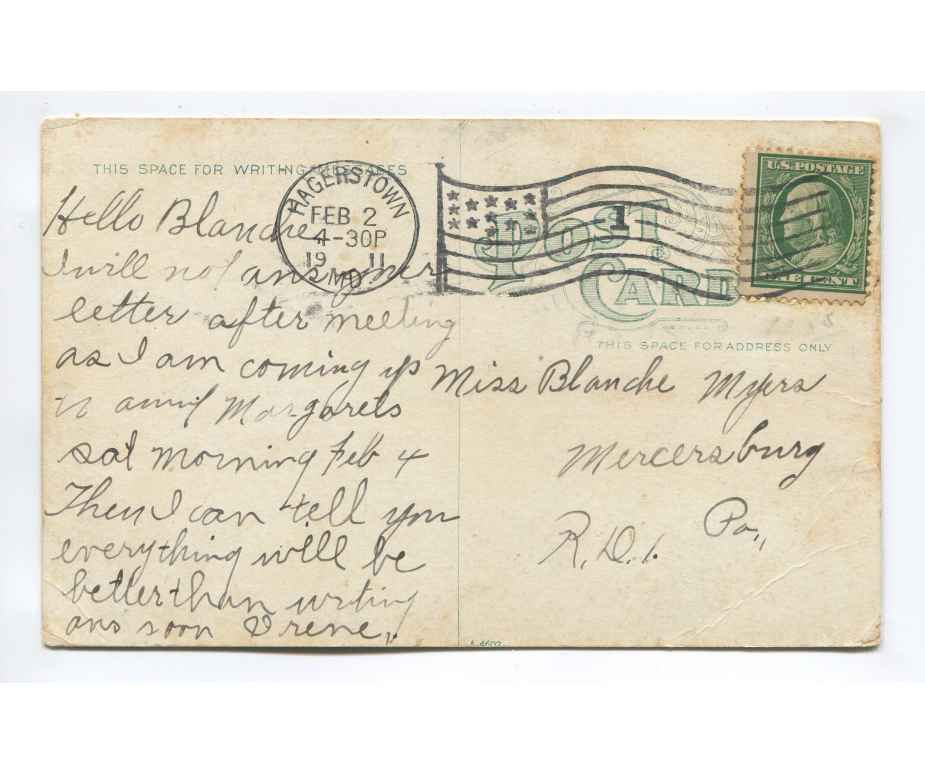 THIS SPACE FOR WRITING MESSAGES
Hello Blanche,
I will not ans your
letter after meeting
as I am coming up
to Margarets
sat morning Feb 4
Then I can tell you
everything will be
better than writing
ans soon Irene,,
HAGERSTOWN
FEB 2
4-30P
19 11
MD
1
U.S. POSTAGE
ONE CENT
POST
CARD
THIS SPACE FOR ADDRESS ONLY
Miss Blanche Myers
Mercersburg
R.D.1. Pa,,